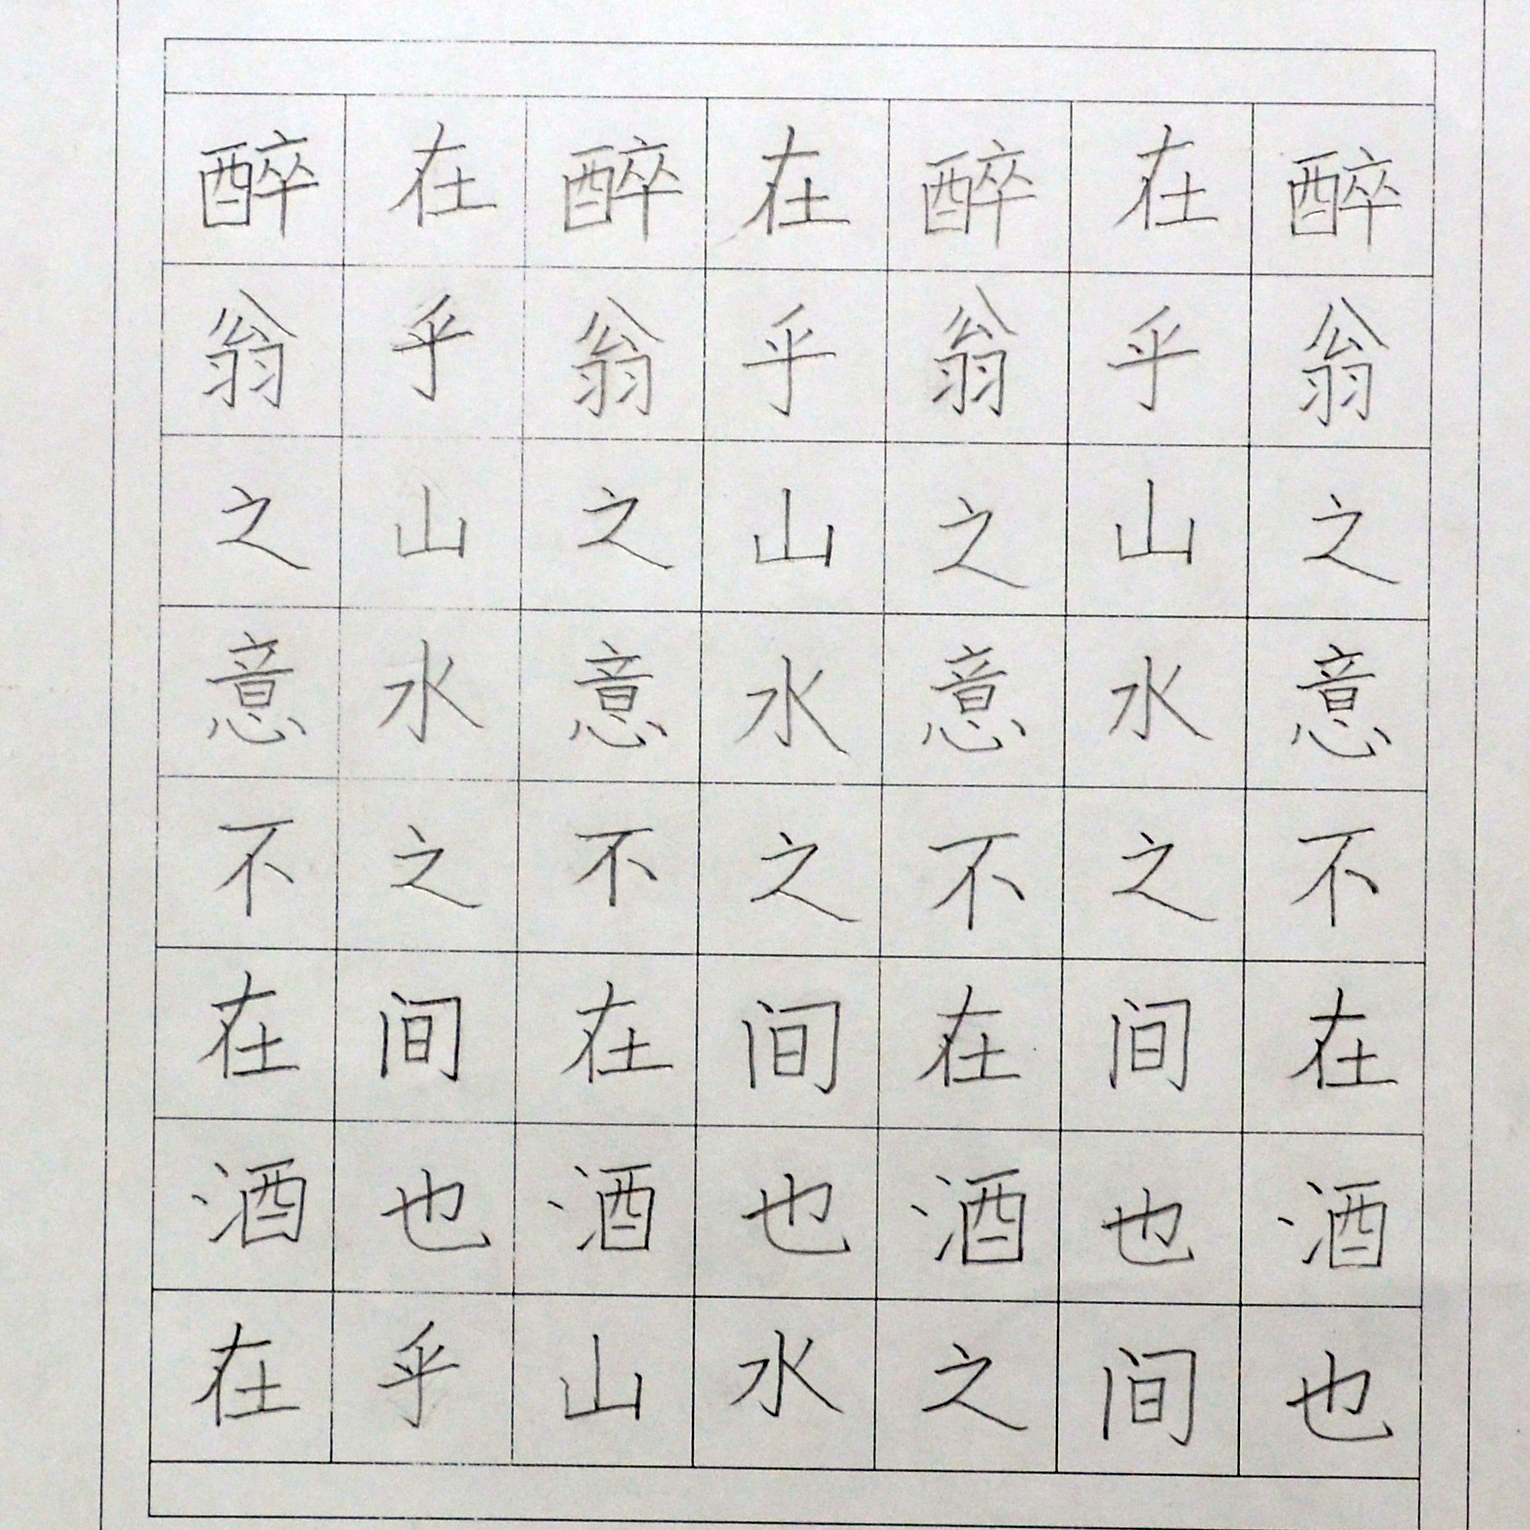 醉翁之意不在酒
在乎山水之间也
醉翁之意不在酒
在乎山水之间也
醉翁之意不在酒
在乎山水之间也
醉翁之意不在酒
在乎山水之间也